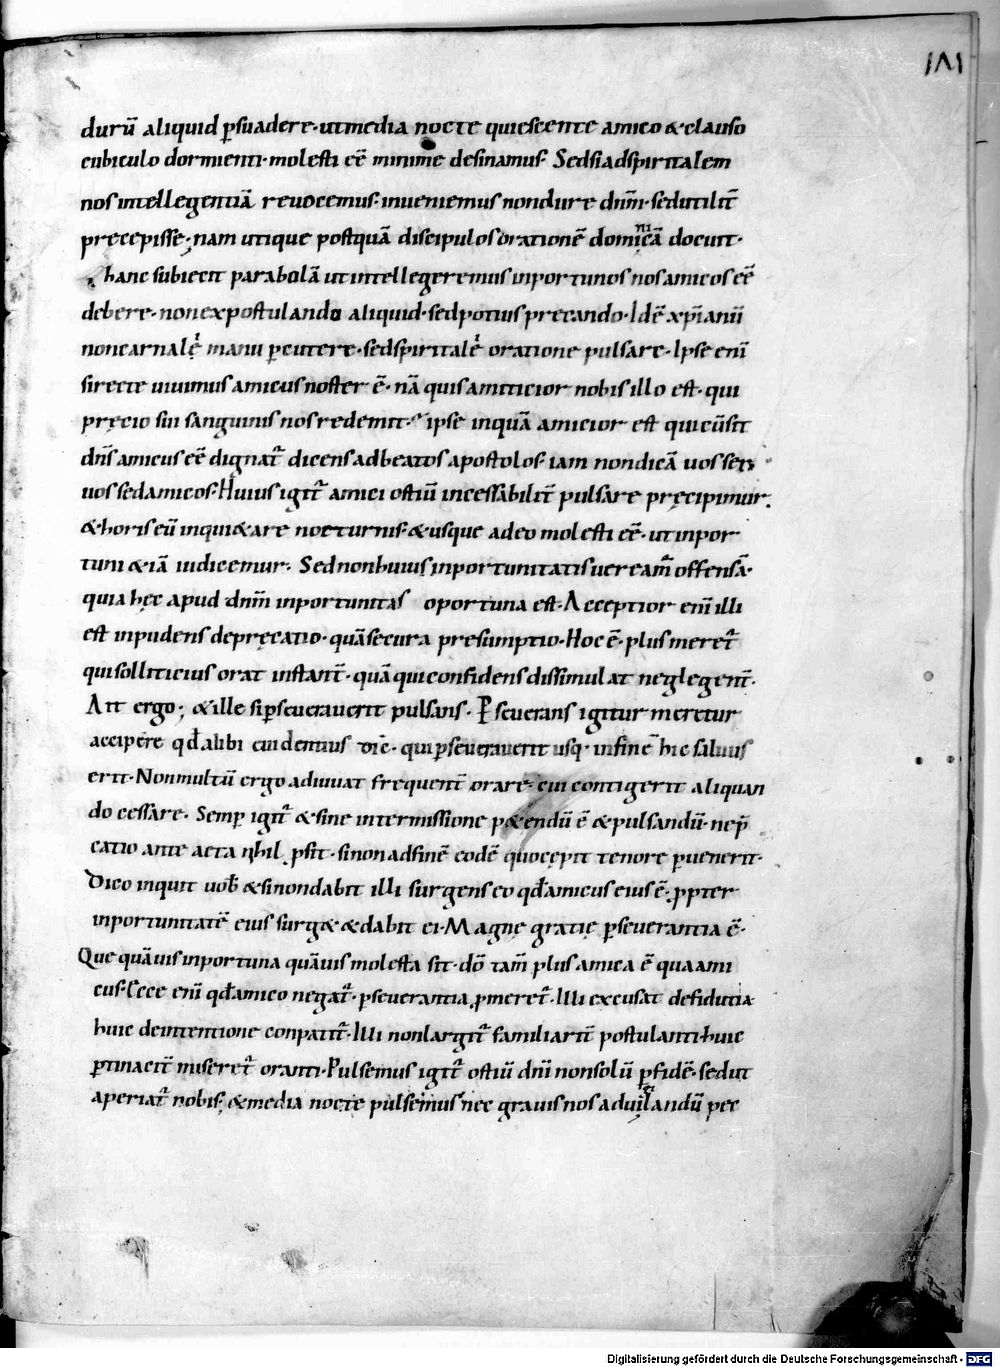 181
durū aliquid ꝑsuadere · ut media nocte quiescente amico & clauso
cubiculo dormienti · molesti eē minime desinamus · Sed si ad spiritalem
nos intellegentiā reuocemus · inueniemus non dure dn̄m · sed utilit̄
precepisse; nam utique postquā discipulos orationē dominicā docuit ·
hanc subiecit parabolā ut intellegeremus inportunos nos amicos eē
debere · non expostulando aliquid · sed potius precando · Idē xp̄ianū
non carnalē manu ꝑcutere · sed spiritalē oratione pulsare · Ipse enī
si recte uiuimus amicus noster ē · nā quis amicior nobis illo est · qui
pręcio sui sanguinis nos redemit · ipse inquā amicior est qui cū sit
dn̄s amicus eē dignat᷑ dicens ad beatos apostolos · iam non dicā uos ser
uos sed amicos · Huius igit᷑ amici ostiū incessabilit̄ pulsare pręcipimur ·
& horis eū inqui&are nocturnis · & usque adeo molesti eē · ut inpor
tuni & iā iudicemur · Sed non huius inportunitatis ueream᷑ offensā ·
quia hęc apud dn̄m inportunitas oportuna est · Acceptior enī illi
est inpudens depręcatio · quā secura presumptio · Hoc ē · plus meret᷑
qui solliticius orat instant̄ · quā qui confidens dissimulat neglegent̄ ·
Ait ergo; & ille si ꝑseuerauerit pulsans · Ꝑseuerans igitur meretur
accipere qđ alibi euidentius dic̄ · qui ꝑseuerauerit usq· in finē hic saluus
erit · Non multū ergo adiuuat frequent̄ orare · cui contigerit aliquan
do cessare · Semꝑ igit᷑ & sine intermissione p&endū ē & pulsandū · nec p̄
catio ante acta nihil ꝓsit · si non ad finē eodē quo cepit tenore ꝑuenerit ·
Dico inquit uob̄ & si non dabit illi surgens eo qđ amicus eius ē · ꝓpter
inportunitatē eius surg& & dabit ei · Magnę gratię ꝑseuerantia ē ·
Que quāuis inportuna quāuis molesta sit · dō tam̄ plus amica ē qua ami
cus · Ecce enī qđ amico negat᷑ · ꝑseuerantia ꝓmeret᷑ · Illi excusat de fidutia
huic de intentione conpatit᷑ · Illi non largit᷑ familiarit̄ postulanti · huic
ꝑtinacit̄ miseret᷑ oranti · Pulsemus igit᷑ ostiū dn̄i non solū ꝑ fidē · sed ut
aperiat᷑ nobis · & media nocte pulsemus nec grauis nos ad uigilandū pec
Digitalisierung gefördert durch die Deutsche Forschungsgemeinschaft - DFG